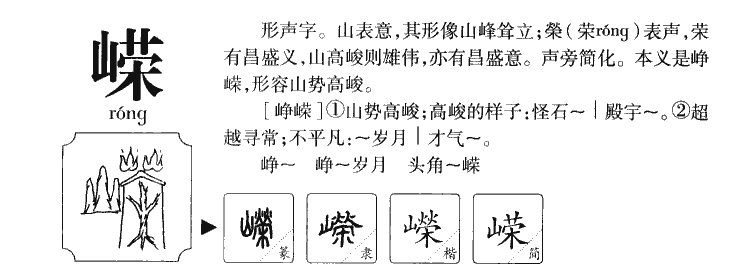 嵘
róng
形声字。山表意,其形像山峰耸立;榮(荣róng)表声,荣
有昌盛义,山高峻则雄伟,亦有昌盛意。声旁简化。本义是峥
嵘,形容山势高峻。
[峥嵘]①山势高峻;高峻的样子:怪石～｜殿宇～。②超
越寻常;不平凡:～岁月｜才气～。
峥～ 峥～岁月 头角～嵘
嶸 篆
嶸 隶
嶸 楷
嵘 简